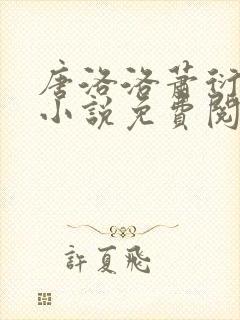 唐洛洛萧衍
小说免費閱
許夏飛